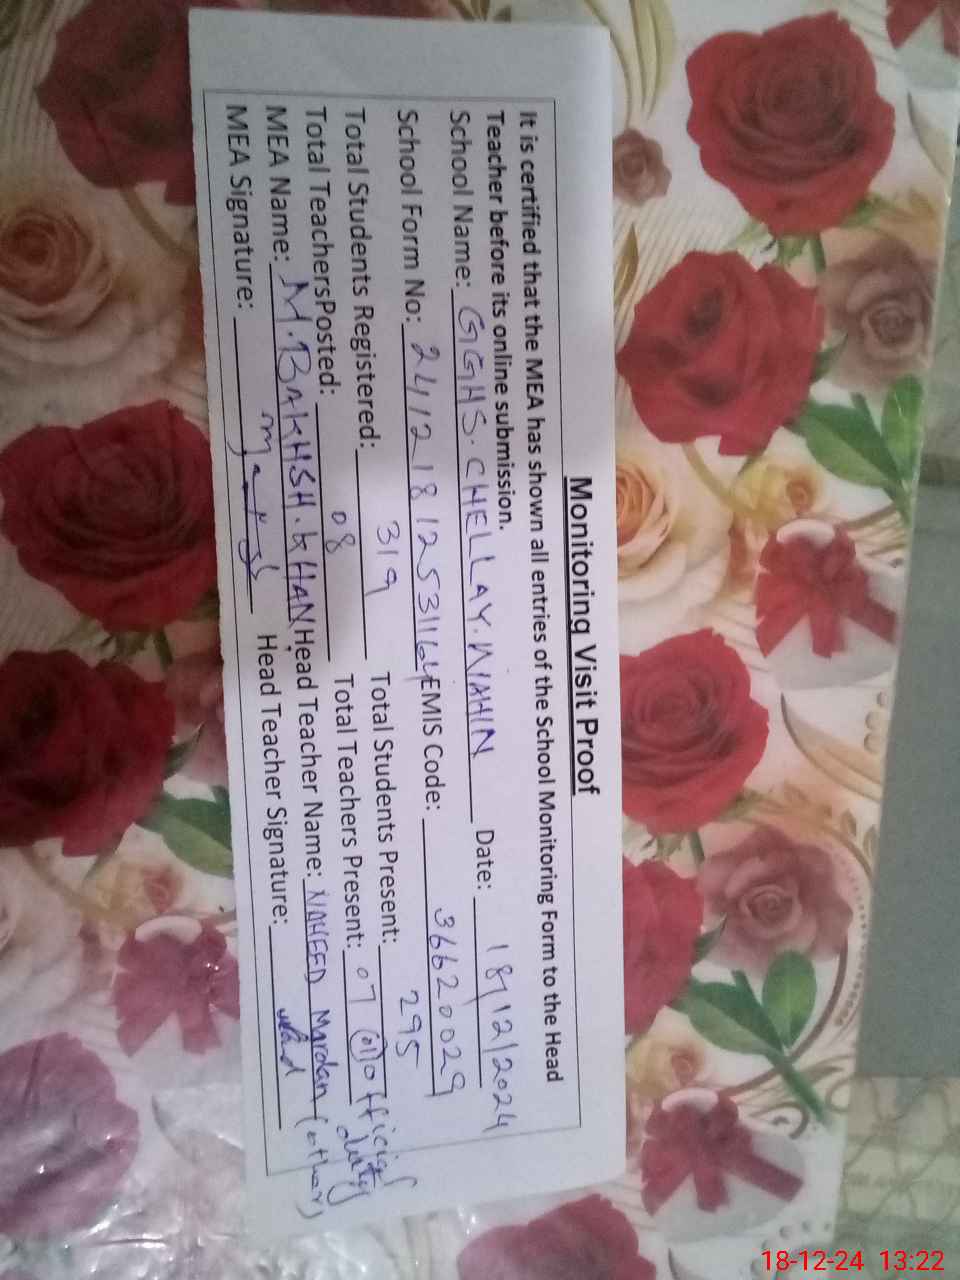 Monitoring Visit Proof
It is certified that the MEA has shown all entries of the School Monitoring Form to the Head
Teacher before its online submission.
School Name: GGHS. CHELLAY. WAHIN Date: 18/12/2024
School Form No: 24121812531164 EMIS Code: 36620029
Total Students Registered: 319 Total Students Present: 295
Total TeachersPosted: 08 Total Teachers Present: 07 (01) official duty
MEA Name: M. BAKHSH. KHAN Head Teacher Name: NAHEED Mardan (other)
MEA Signature: Head Teacher Signature:
18-12-24 13:22